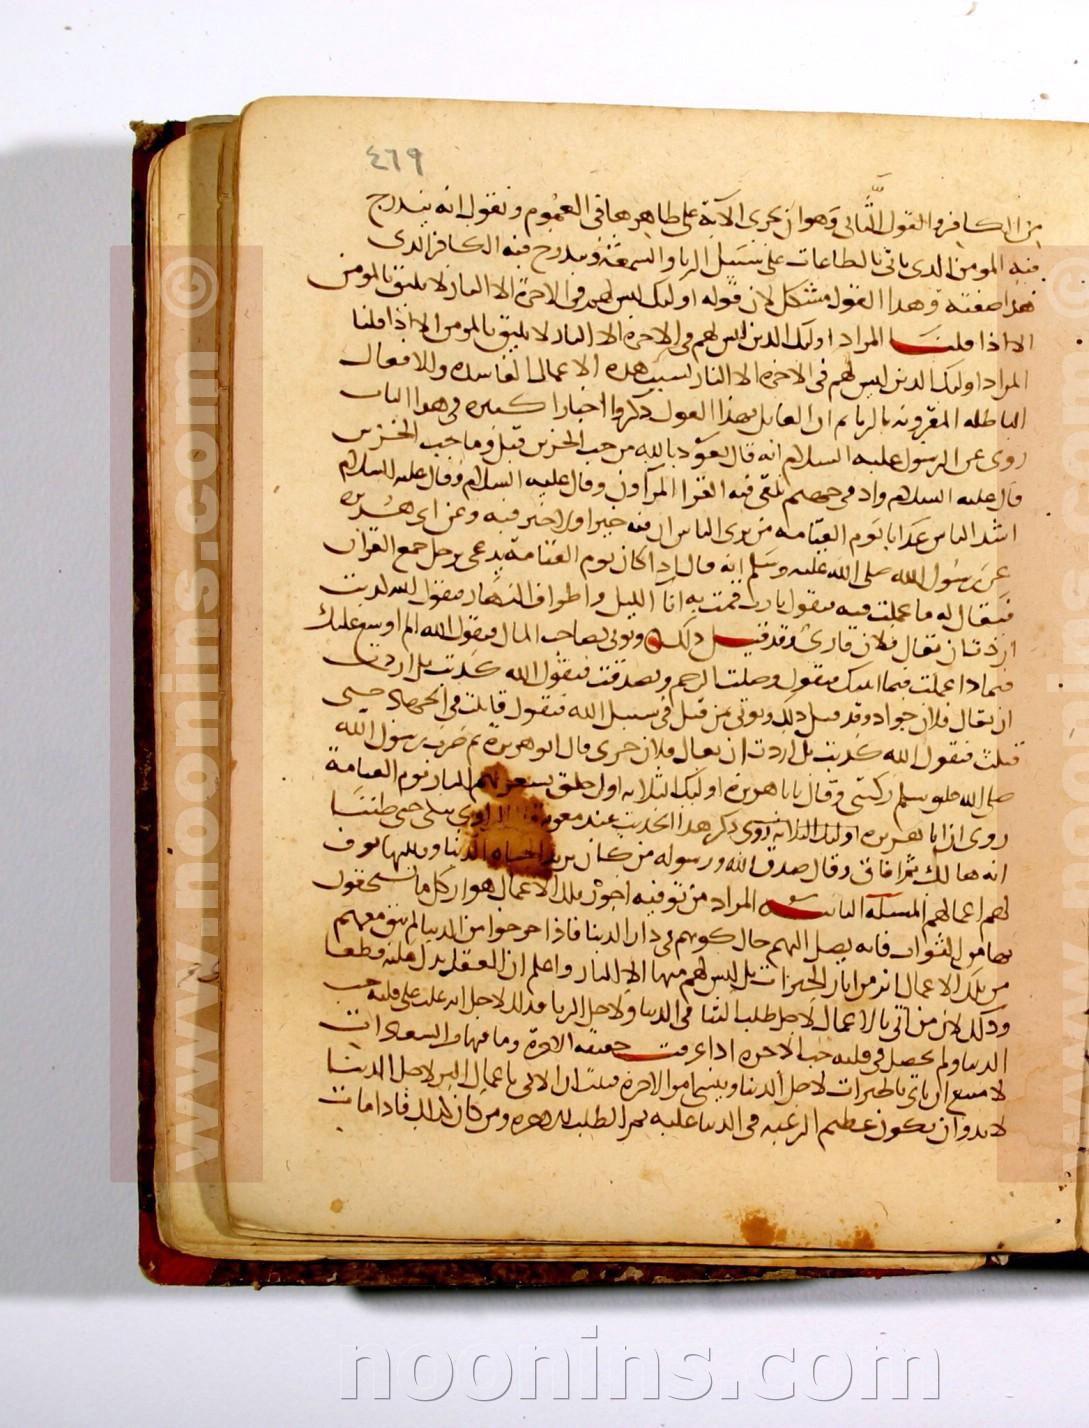 ٤٦٩
من الكافر والقول الثاني وهو ان يجرى الآية على ظاهرها في العموم ونقول انه يندرج
فيه المومن الذى ياتى بالطاعات على سبيل الريا والسمعة ويندرج فيه الكافر الذى
هذا صفته وهذا القول مشكل لان قوله اوليك ليس لهم فى الاخرة الا النار لا يليق بالمومن
الا اذا قلنا المراد اوليك الذين ليس لهم فى الاخرة الا النار لا يليق بالمومن الا اذا قلنا
المراد اوليك الذين ليس لهم فى الاخرة الا النار بسبب هذه الاعمال الفاسده والافعال
الباطله المقرونه بالريا ثم ان القايل بهذا القول ذكروا اخبارا كثيره فى هذا الباب
روى عن الرسول عليه السلام انه قال تعوذ بالله من جب الحزن قيل وما جب الحزن
قال عليه السلام واد فى جهنم يلقى فيه القرا المرآون وقال عليه السلام وقال عليه السلام
اشد الناس عذابا يوم القيامه من يرى الناس ان فيه خيرا ولا خير فيه وعن ابى هريره
عن رسول الله صلى الله عليه وسلم انه قال اذا كان يوم القيامة يدعى برجل جمع القران
فيقال له ما عملت فيه فيقول يارب قمت به انا الليل واطراف النهار فيقول الله كذبت
اردت ان يقال فلان قارئ فقد قيل ذلك ويوتى بصاحب المال فيقول الله الم اوسع عليك
فماذا عملت فيما اتيتك فيقول وصلت الرحم وتصدقت فيقول الله كذبت بل اردت
ان يقال فلان جواد وقد قيل ذلك ويوتى من قتل فى سبيل الله فيقول قاتلت فى الجهاد حتى
قتلت فيقول الله كذبت بل اردت ان يقال فلان جرى قال ابو هريرة ثم ضرب رسول الله
صلى الله عليه وسلم ركبتى وقال يا ابا هريرة اوليك الثلاثه اول خلق تسعر بهم النار يوم القيامة
روى ان ابا هريره ذكر هذا الحديث عند معوية الراوى بكى حتى ظننا
انه هالك ثم افاق وقال صدق الله ورسوله من كان يريد الحياه الدنيا وزينتها نوف
لهم اعمالهم المسئله الثانيه المراد من توفيه اجور تلك الاعمال هو ان كل ما يستحقون
بها من الثواب فانه يصل اليهم حال كونهم فى دار الدنيا فاذا خرجوا من الدنيا لم يبق معهم
من تلك الاعمال اثر من اثار الخيرات بل ليس لهم منها الا النار واعلم ان العقل يدل عليه قطعا
وذلك لان من اتى بالاعمال لاجل طلب الثنا فى الدنيا ولاجل الريا فذلك لاجل انه غلب على قلبه حب
الدنيا ولم يحصل فى قلبه حب الاخره اذا عرفت حقيقه الاخرة وما فيها من السعادات
لامتنع ان ياتى بالخيرات لاجل الدنيا وينسى امر الاخرة فثبت ان الاتى باعمال البر لاجل الدنيا
لابد وان يكون عظيم الرغبه فى الدنيا عليه الطلب للاخره ومن كان كذلك فاذا مات
www.noonins.com ©
www.noonins.com ©
noonins.com